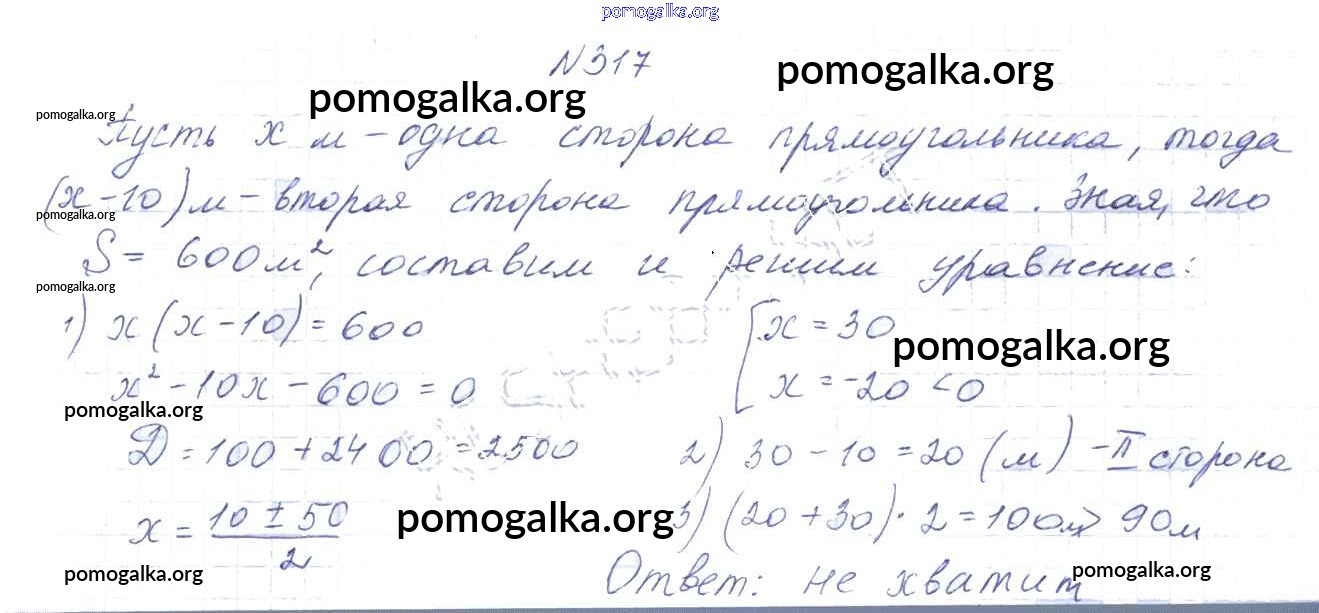 pomogalka.org
N 317
pomogalka.org
pomogalka.org
pomogalka.org
Пусть x м – одна сторона прямоугольника, тогда
(x-10) м – вторая сторона прямоугольника. Зная, что
pomogalka.org
S = 600 м², составим и решим уравнение:
pomogalka.org
1) x (x-10) = 600
x² - 10x - 600 = 0
pomogalka.org
D = 100 + 2400 = 2500
x = (10 ± 50)/2
pomogalka.org
[x = 30
pomogalka.org
x = -20 < 0
2) 30 - 10 = 20 (м) - II сторона
pomogalka.org
3) (20 + 30) · 2 = 100м > 90м
Ответ: не хватит
pomogalka.org